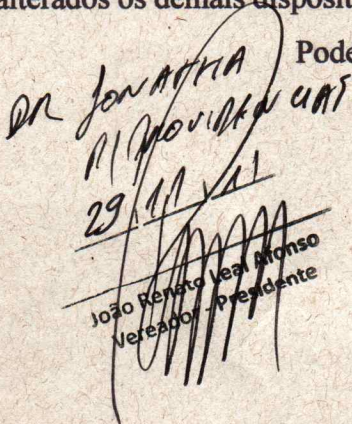 alterados os demais disposit
Pode
DR JONATHA
P/ PROVIDENCIAS
29/11/11
João Renato Leal Afonso
Vereador - Presidente